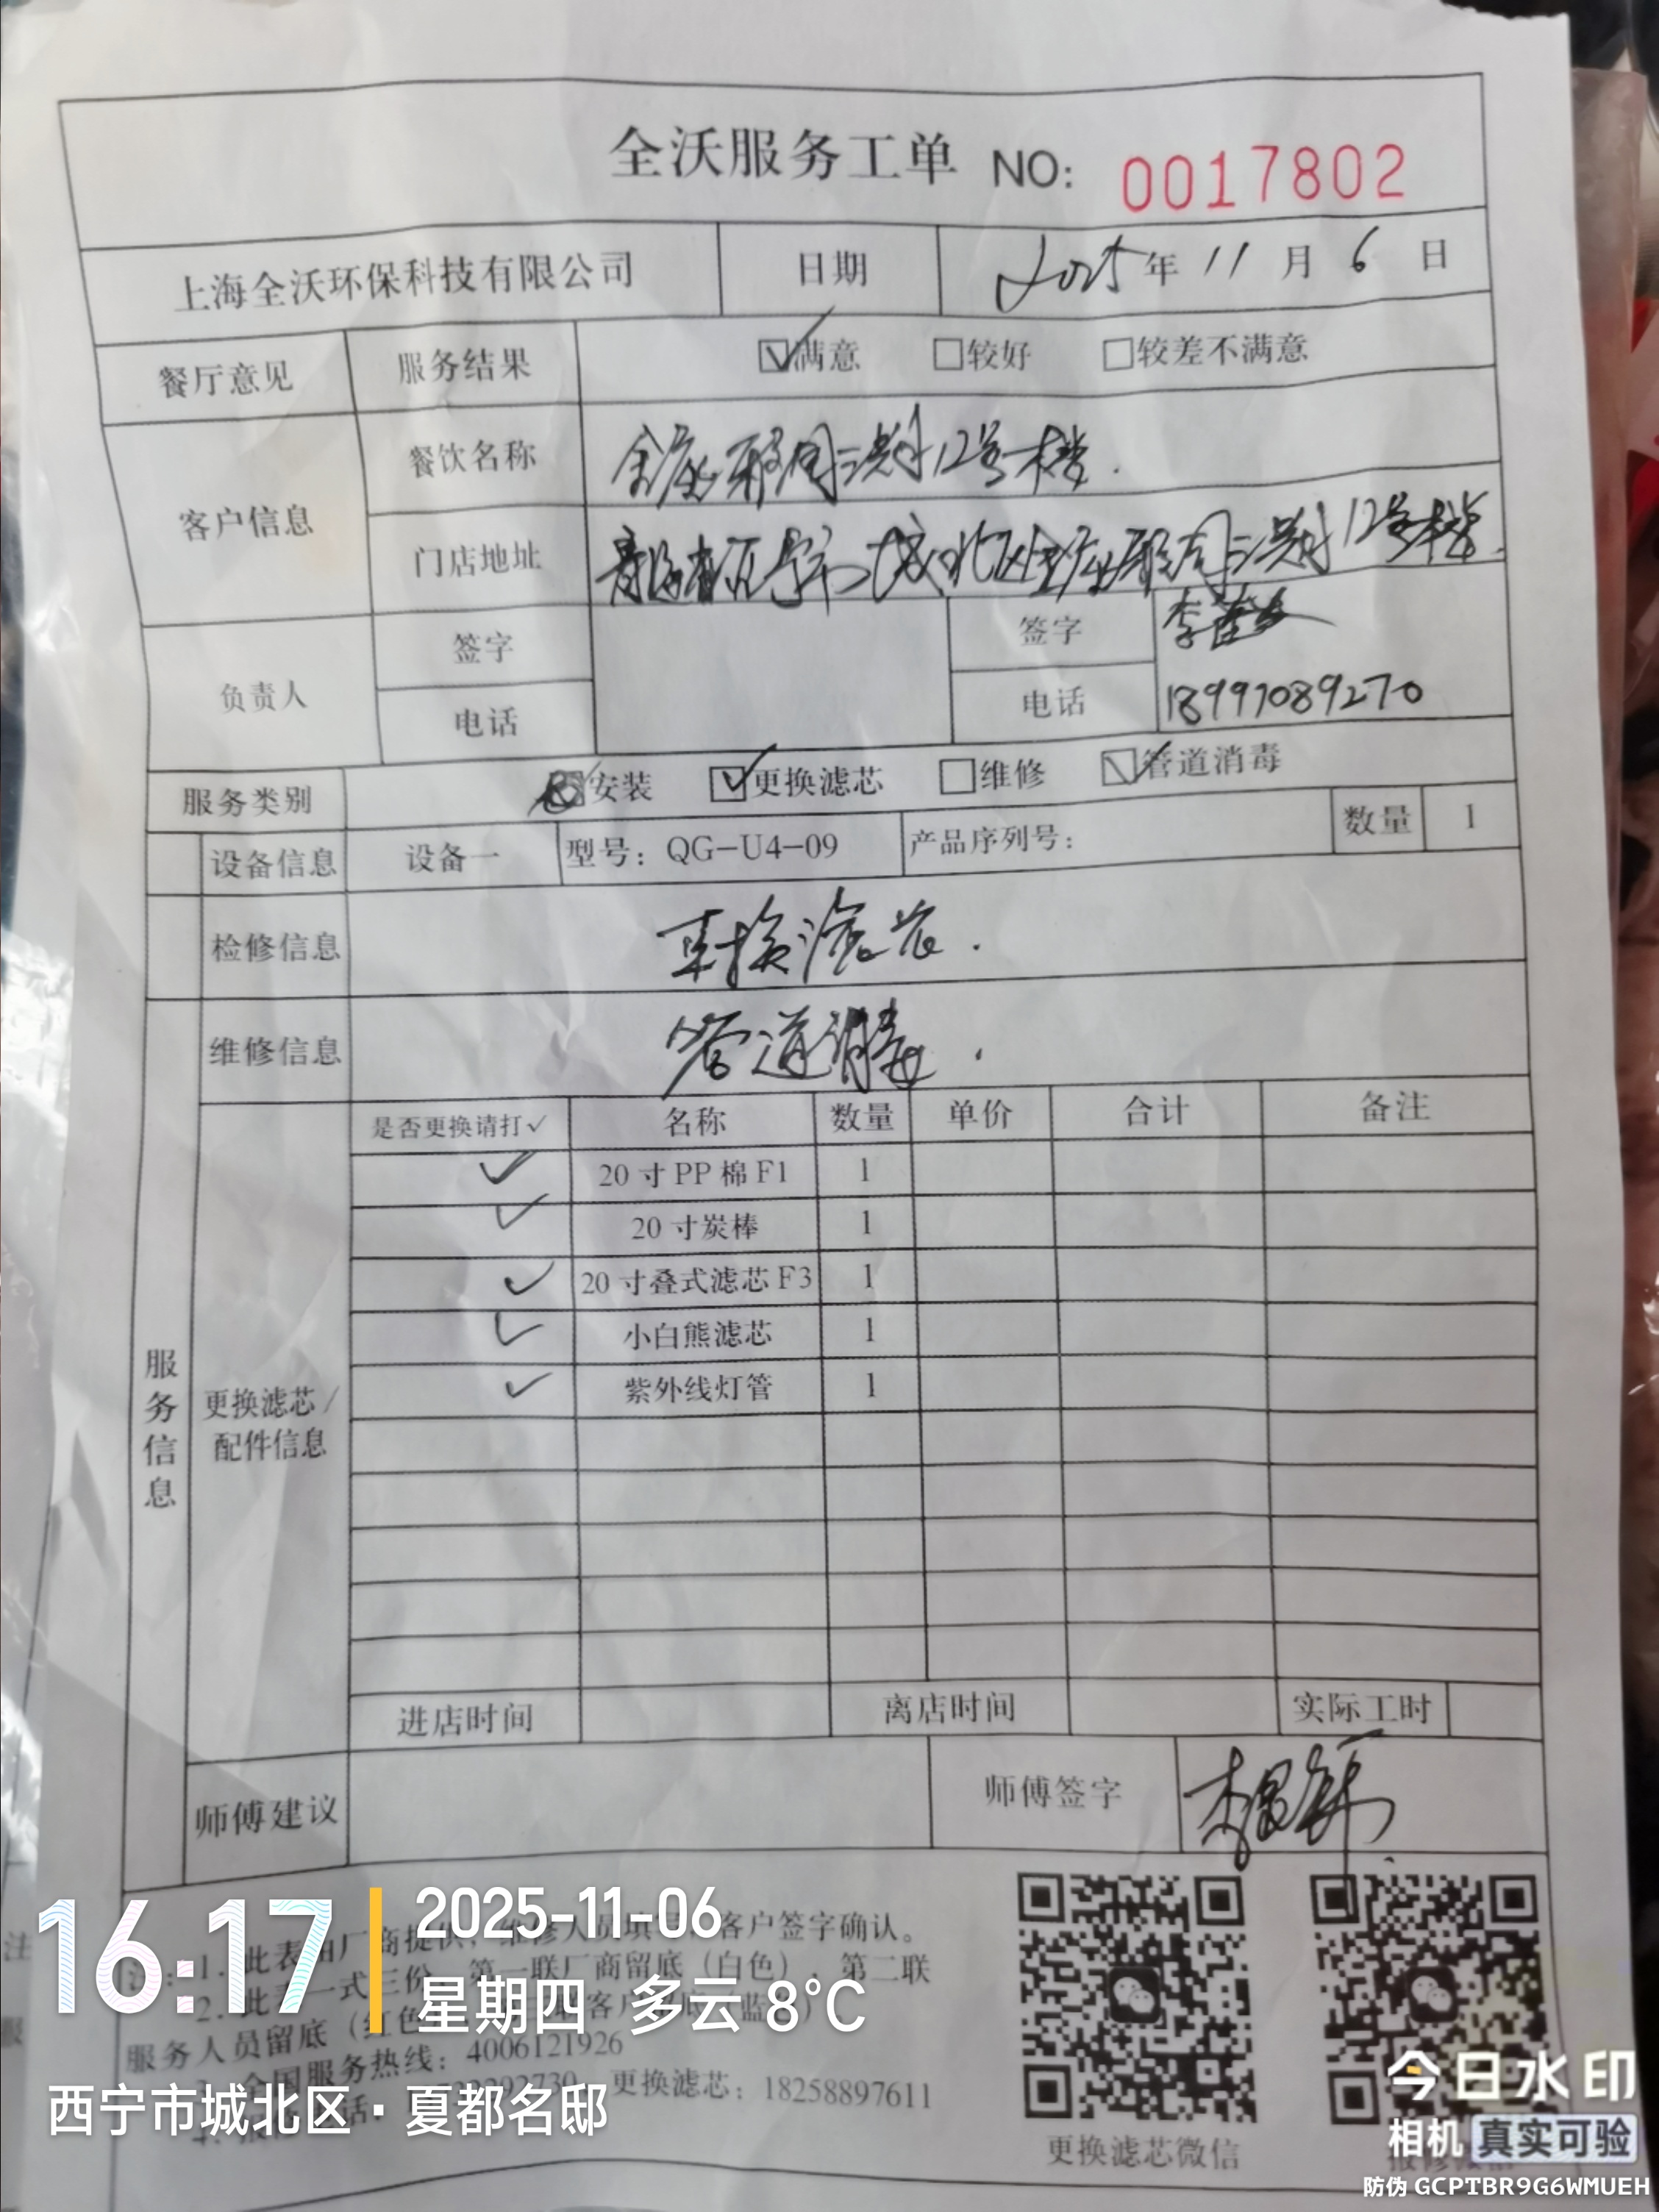 全沃服务工单 NO: 0017802
上海全沃环保科技有限公司 日期 2025年 11 月 6 日
餐厅意见 服务结果 ☑满意 □较好 □较差不满意
客户信息 餐饮名称 12号楼.
门店地址 青海省西宁市城北区 12号楼.
负责人 签字 签字 李
电话 电话 18997089270
服务类别 安装 ☑更换滤芯 □维修 ☑管道消毒
设备信息 设备一 型号: QG-U4-09 产品序列号: 数量 1
检修信息 更换滤芯.
维修信息 管道消毒.
服务信息
更换滤芯/
配件信息
是否更换请打✓ 名称 数量 单价 合计 备注
✓ 20寸PP棉F1 1
✓ 20寸炭棒 1
✓ 20寸叠式滤芯F3 1
✓ 小白熊滤芯 1
✓ 紫外线灯管 1
进店时间 离店时间 实际工时
师傅建议 师傅签字 李
1. 此表由厂商提供, 维修人员填 客户签字确认。
2. 此表一式三份, 第一联厂商留底(白色), 第二联
服务人员留底(红色
全国服务热线: 4006121926
更换滤芯: 18258897611
更换滤芯微信
16:17
2025-11-06
星期四 多云 8°C
西宁市城北区·夏都名邸
今日水印
相机 真实可验
防伪 GCPTBR9G6WMUEH